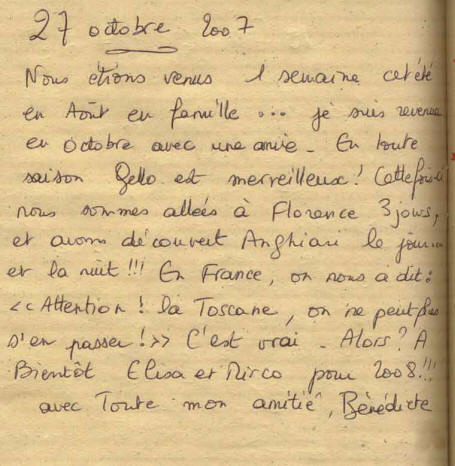 27 octobre 2007
Nous étions venus 1 semaine cet été
en Août en famille ... je suis revenue
en octobre avec une amie. En toute
saison Gello est merveilleux! Cette fois-ci
nous sommes allées à Florence 3 jours,
et avons découvert Anghiari le jour
et la nuit!!! En France, on nous a dit:
<< Attention! La Toscane, on ne peut plus
s'en passer!>> C'est vrai. Alors? A
Bientôt Elisa et Mirco pour 2008!!!
avec Toute mon amitié, Bénédicte